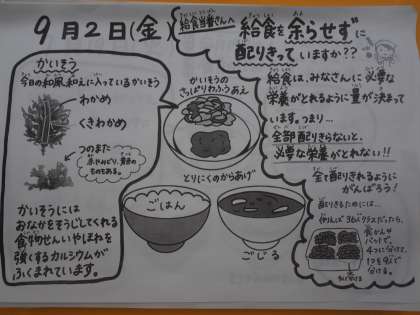 9月2日(金)
かいそう
今日の和風和えに入っているかいそう
わかめ
くきわかめ
つのまた
赤やみどり、黄色の
ものもある。
かいそうには
おなかをそうじしてくれる
食物せんいやほねを
強くするカルシウムが
ふくまれています。
かいそうの
さっぱりわふうあえ
とりにくのからあげ
ごはん
ごじる
給食当番さんへ
給食を余らせずに
配りきっていますか??
給食は、みなさんに必要な
栄養がとれるように量が決まって
います。つまり…
全部配りきらないと、
必要な栄養がとれない!!
全て配りきれるように
がんばろう!
配りきるためには…
例えば36人クラスだったら、
食かんや
バットで、
4つに分けて、
1つを9人で
分ける。